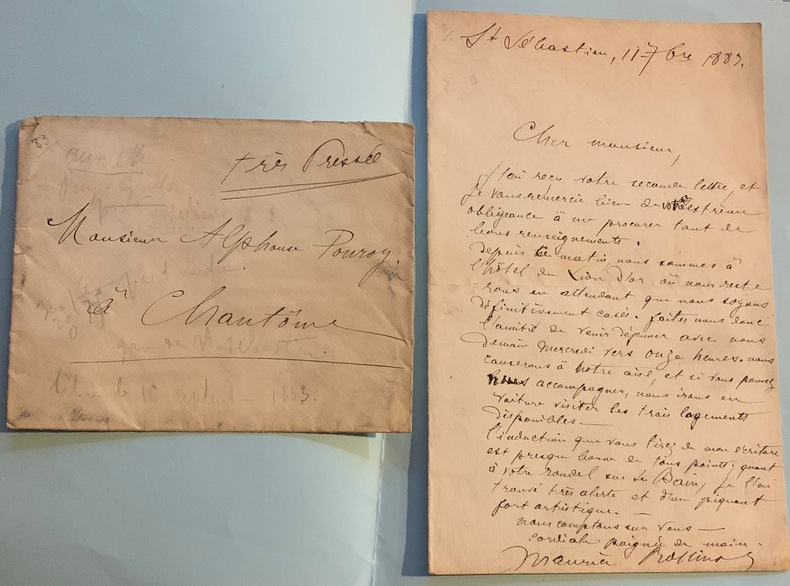 83
très Pressée
Monsieur Alphonse Ponroy
à Chantôme
gare de
1883.
St Sébastien, 11 7bre 1883.
Cher monsieur,
J'ai reçu votre seconde lettre, et
je vous remercie bien de votre extrême
obligeance à me procurer tant de
bons renseignements.
Depuis ce matin nous sommes à
l'hôtel du Lion d'or où nous reste
-rons en attendant que nous soyons
définitivement casés. faites nous donc
l'amitié de venir déjeuner avec nous
demain Mercredi vers onze heures. nous
causerons à notre aise, et si vous pouvez
nous accompagner, nous irons en
voiture visiter les trois logements
disponibles.
l'induction que vous tirez de mon écriture
est presque bonne de tous points; quant
à votre rondel sur le Bain, je l'ai
trouvé très alerte et d'un piquant
fort artistique. —
nous comptons sur vous —
cordiale poignée de main.
Maurice Rollinat